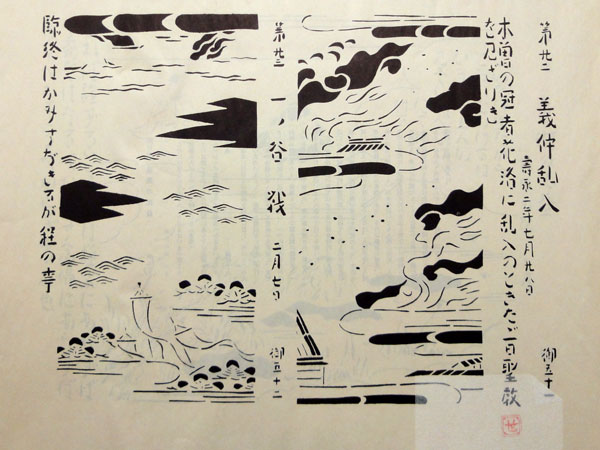 第廿二 義仲乱入 壽永二年七月廿八日 御五十一
木曽の冠者花洛に乱入のときたゞ一日聖教
を見ざりき
第廿三 一ノ谷戦 二月七日 御五十二
臨終はかみすぢきるが程の事